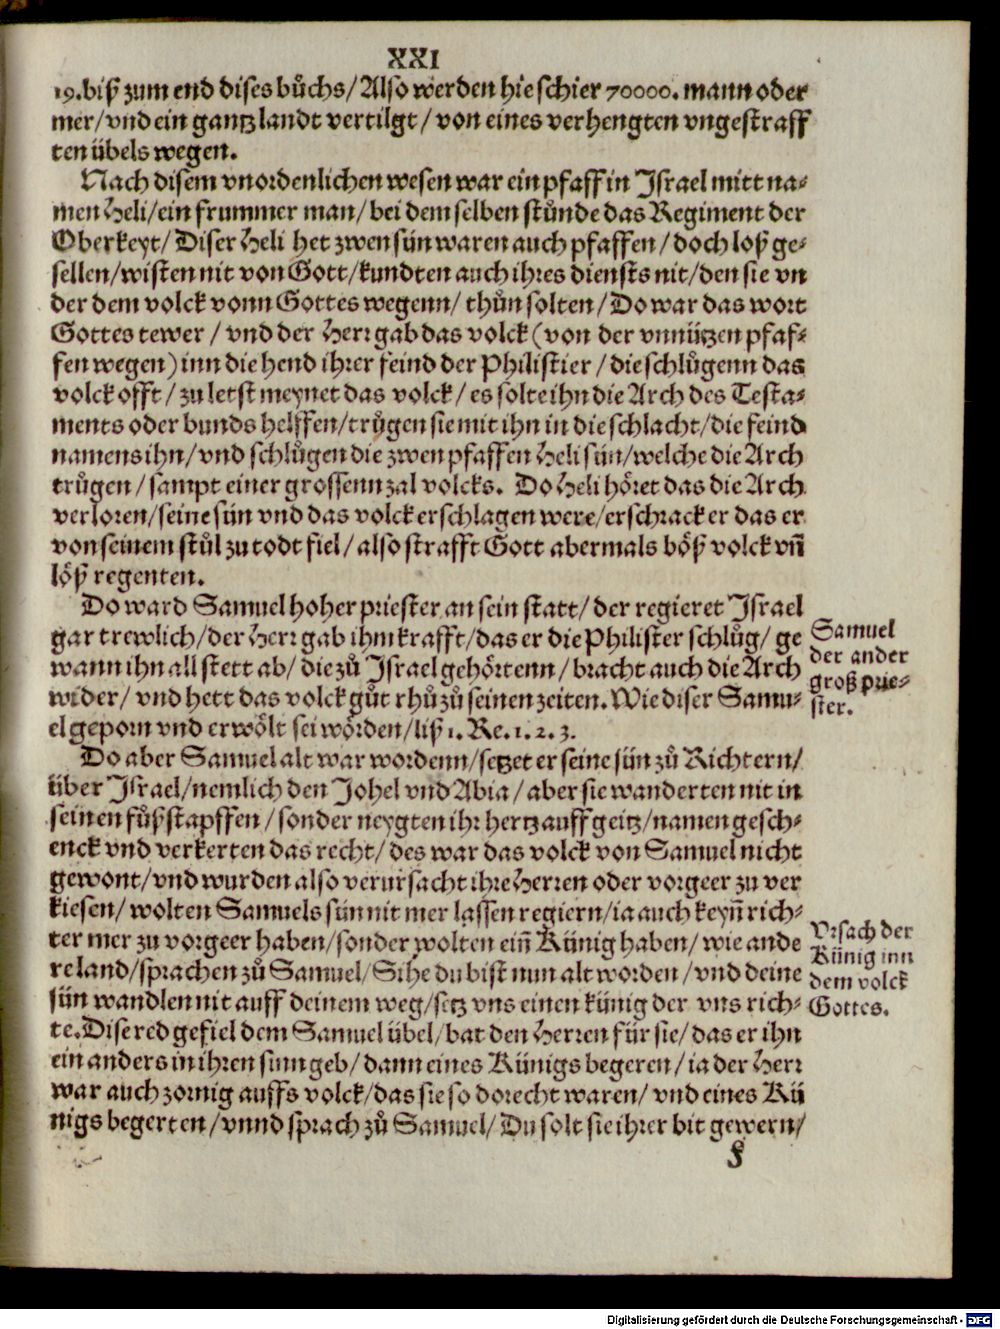 XXI
19. biß zum end dises bůchs / Also werden hie schier 70000. mann oder
mer / vnd ein gantz landt vertilgt / von eines verhengten vngestraff
ten übels wegen.
Nach disem vnordenlichen wesen war ein pfaff in Israel mitt na-
men Heli / ein frummer man / bei dem selben stůnde das Regiment der
Oberkeyt / Diser Heli het zwen sün waren auch pfaffen / doch loß ge-
sellen / wisten nit von Gott / kundten auch ihres diensts nit / den sie vn
der dem volck vonn Gottes wegenn / thůn solten / Do war das wort
Gottes tewer / vnd der Herr gab das volck (von der vnnützen pfaf-
fen wegen) inn die hend ihrer feind der Philistier / die schlůgenn das
volck offt / zu letst meynet das volck / es solte ihn die Arch des Testa-
ments oder bunds helffen / trůgen sie mit ihn in die schlacht / die feind
namens ihn / vnd schlůgen die zwen pfaffen Heli sün / welche die Arch
trůgen / sampt einer grossenn zal volcks. Do Heli höret das die Arch
verloren / seine sün vnd das volck erschlagen were / erschrack er das er
von seinem stůl zu todt fiel / also strafft Gott abermals böß volck vn̄
löß regenten.
Do ward Samuel hoher priester an sein statt / der regieret Israel
gar trewlich / der Herr gab ihm krafft / das er die Philister schlůg / ge
wann ihn all stett ab / die zů Israel gehörtenn / bracht auch die Arch
wider / vnd hett das volck gůt rhů zů seinen zeiten. Wie diser Samu-
el geporn vnd erwölt sei wörden / liß 1. Re. 1. 2. 3.
Samuel
der ander
groß prie-
ster.
Do aber Samuel alt war wordenn / setzet er seine sün zů Richtern /
über Israel / nemlich den Johel vnd Abia / aber sie wanderten nit in
seinen fůßstapffen / sonder neygten ihr hertz auff geitz / namen gesch-
enck vnd verkerten das recht / des war das volck von Samuel nicht
gewont / vnd wurden also verursacht ihre Herren oder vorgeer zu ver
kiesen / wolten Samuels sün nit mer lassen regiern / ia auch keyn̄ rich-
ter mer zu vorgeer haben / sonder wolten ein̄ Künig haben / wie ande
re land / sprachen zů Samuel / Sihe du bist nun alt worden / vnd deine
sün wandlen nit auff deinem weg / setz vns einen künig der vns rich-
te. Dise red gefiel dem Samuel übel / bat den Herren für sie / das er ihn
ein anders in ihren sinn geb / dann eines Künigs begeren / ia der Herr
war auch zornig auffs volck / das sie so dorecht waren / vnd eines Kü
nigs begerten / vnnd sprach zů Samuel / Du solt sie ihrer bit gewern /
Vrsach der
Künig inn
dem volck
Gottes.
f
Digitalisierung gefördert durch die Deutsche Forschungsgemeinschaft - DFG